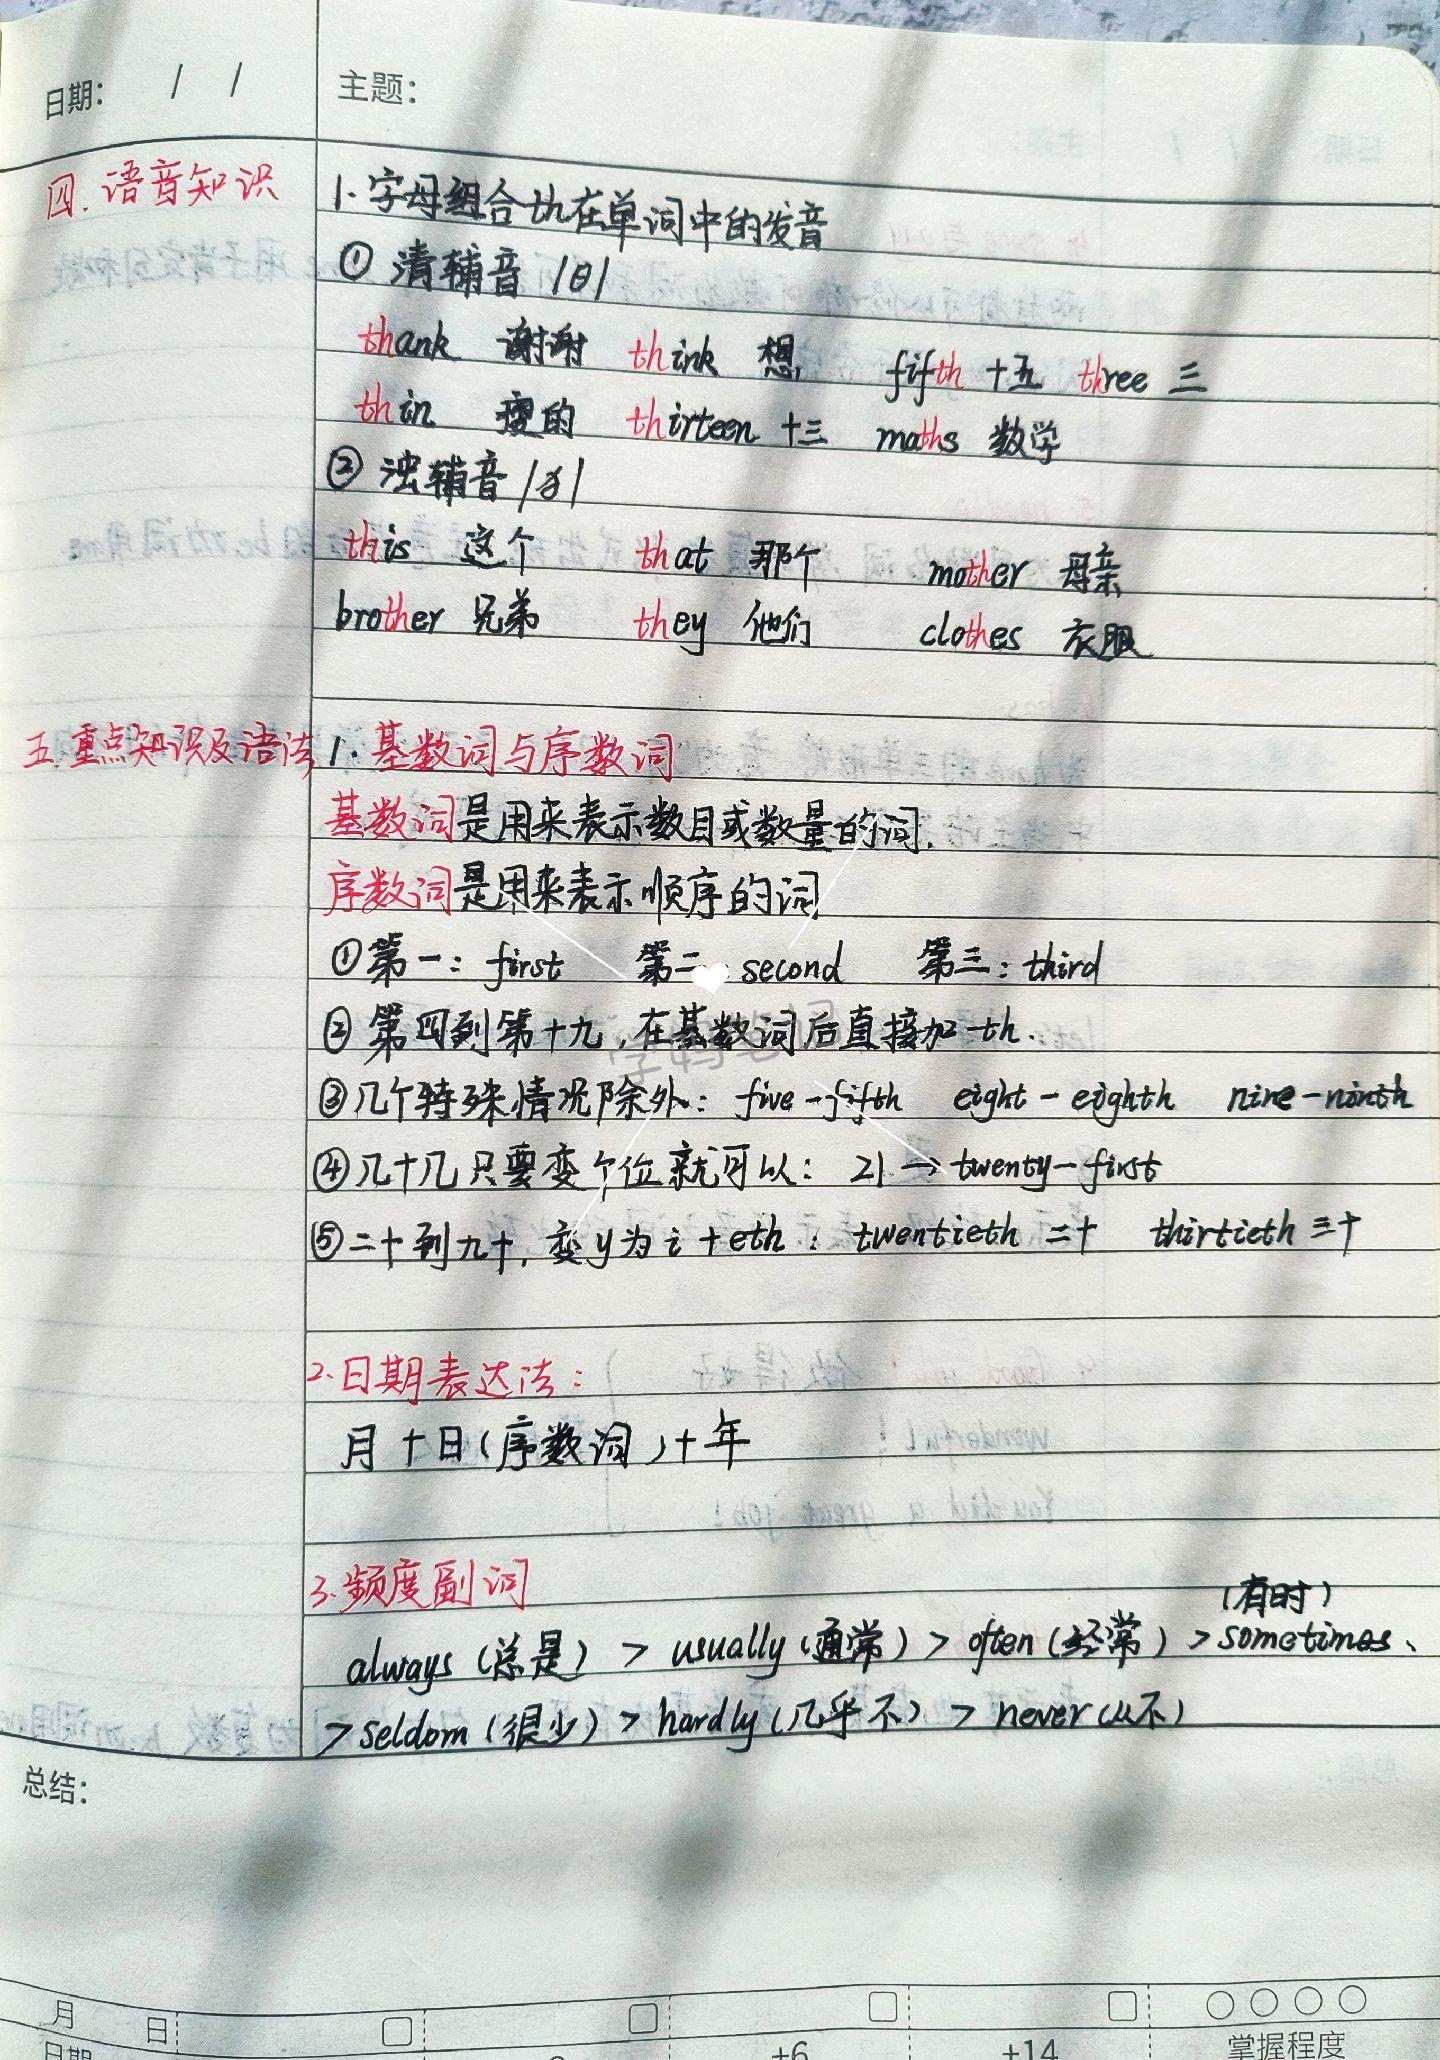 日期: / / 主题:
四. 语音知识
1. 字母组合th在单词中的发音
① 清辅音 /θ/
thank 谢谢 think 想 fifth 十五 three 三
thin 瘦的 thirteen 十三 maths 数学
② 浊辅音 /ð/
this 这个 that 那个 mother 母亲
brother 兄弟 they 他们 clothes 衣服
五.重点知识及语法
1. 基数词与序数词
基数词是用来表示数目或数量的词.
序数词是用来表示顺序的词.
①第一: first 第二: second 第三: third
② 第四到第十九,在基数词后直接加-th.
③几个特殊情况除外: five-fifth eight-eighth nine-ninth
④几十几只要变个位就可以: 21→twenty-first
⑤二十到九十,变y为i+eth: twentieth 二十 thirtieth 三十
2.日期表达法:
月+日(序数词)+年
3.频度副词
(有时)
always (总是) > usually (通常) > often (经常) > sometimes、
> seldom (很少) > hardly (几乎不) > never (从不)
总结:
月 日
日期 +6 +14 掌握程度
学妈笔记